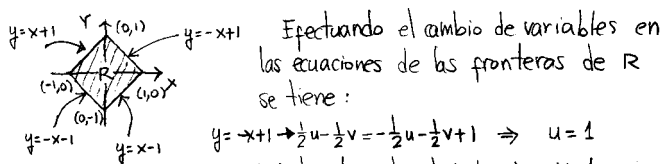 Y
(0,1)
y=x+1
y=-x+1
R
(-1,0)
(1,0)
X
(0,-1)
y=-x-1
y=x-1
Efectuando el cambio de variables en
las ecuaciones de las fronteras de R
se tiene:
y= -x+1 → ½u-½v = -½u-½v+1 ⇒ u=1